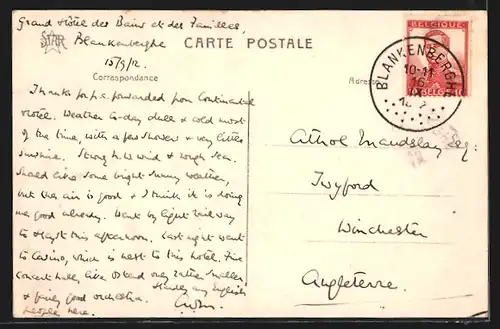 Grand Hôtel des Bains et des Familles,
Blankenberghe
15/9/12.
STAR
CARTE POSTALE
Correspondance
Adresse
Thanks for p.c. forwarded from Continental
Hotel. Weather to-day dull & cold most
of the time, with a few showers & very little
sunshine. Strong N.W. wind & rough sea.
Should like some bright sunny weather,
but the air is good & I think it is doing
me good already. Went by light railway
to Heyst this afternoon. Last night went
to Casino, which is next to this hotel. Fine
concert hall, like Ostend only rather smaller
& fairly good orchestra.
Hardly any English
people here.
BELGIQUE
BLANKENBERGHE
10-11
16
IX
Athol Maudslay Esq:
Twyford
Winchester
Angleterre.